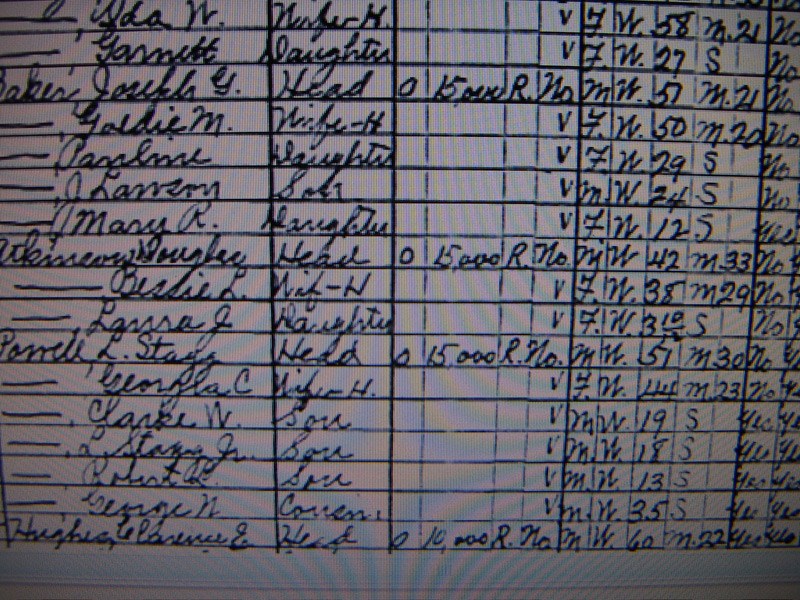 —, Ida W. Wife-H. V F. W. 58 M. 21 No
—, Garnett Daughter V F. W. 27 S No
Baker, Joseph G. Head O 15,000 R. No M W. 51 M. 21 No
—, Goldie M. Wife-H V F. W. 50 M. 20 No
— Pauline Daughter V F. W. 29 S No
—, J Lawson Son V M. W. 24 S No
— Mary R. Daughter V F. W. 12 S Yes
Atkinson Douglas Head O 15,000 R. No. M W 42 M. 33 No
— Bessie L. Wife-H V F. W. 38 M 29 No
—, Laura J Daughter V F. W. 3 10/12 S No
Powell L. Stagg Head O 15,000 R. No. M W. 51 M. 30 No
—, Georgia C Wife-H. V F. W. 44 M. 23 No
—, Clarke W. Son V M W. 19 S Yes
—, L. Stagg Jr. Son V M. W. 18 S Yes
—, Robert Son V M. W. 13 S Yes
—, George W Cousin V M W. 35 S Yes
Hughes, Clarence E Head O 10,000 R. No M W. 60 M. 22 Yes